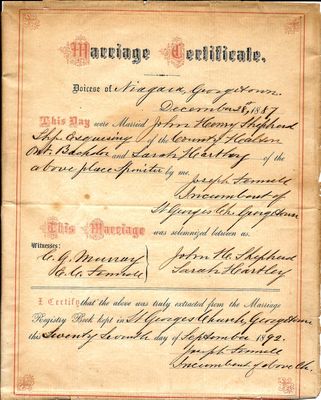 Marriage Certificate.
Diocese of Niagara, Georgetown.
December 28th, 1887
This Day were Married John Henry Shepherd
Shp. Esquesing of the County Halton
Ont. Bachelor and Sarah Hartley of the
above place Spinster by me.
Joseph Fennell
Incumbent of
St Georges Ch. Georgetown
This Marriage was solemnized between us.
Witnesses:
C. G. Murray
C. C. Fennell
John H. Shepherd
Sarah Hartley
I Certify that the above was truly extracted from the Marriage
Registry Book kept in St Georges Church, Georgetown
this Twenty Seventh day of September 1892.
Joseph Fennell
Incumbent of above Ch.